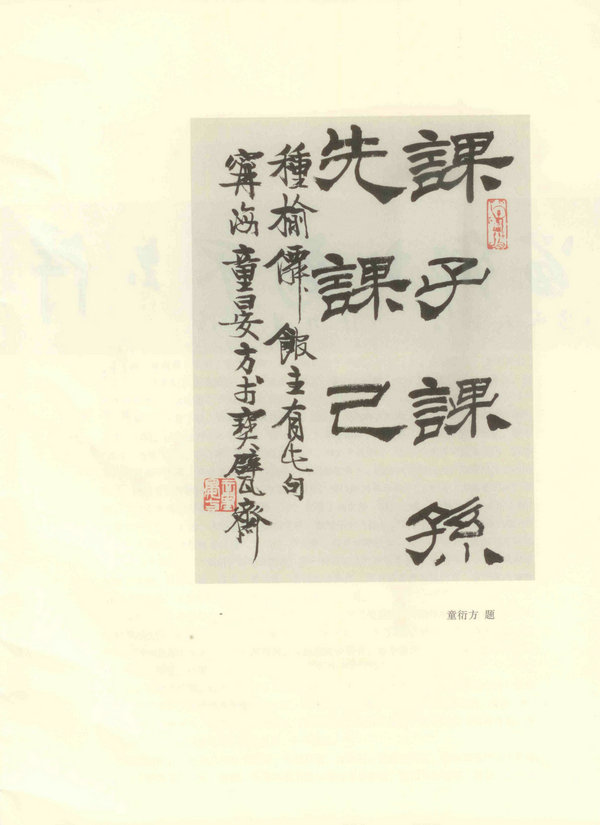 課子課孫
先課己
種榆僊館主有此句
寧海童晏方寶甓齋
童衍方 题